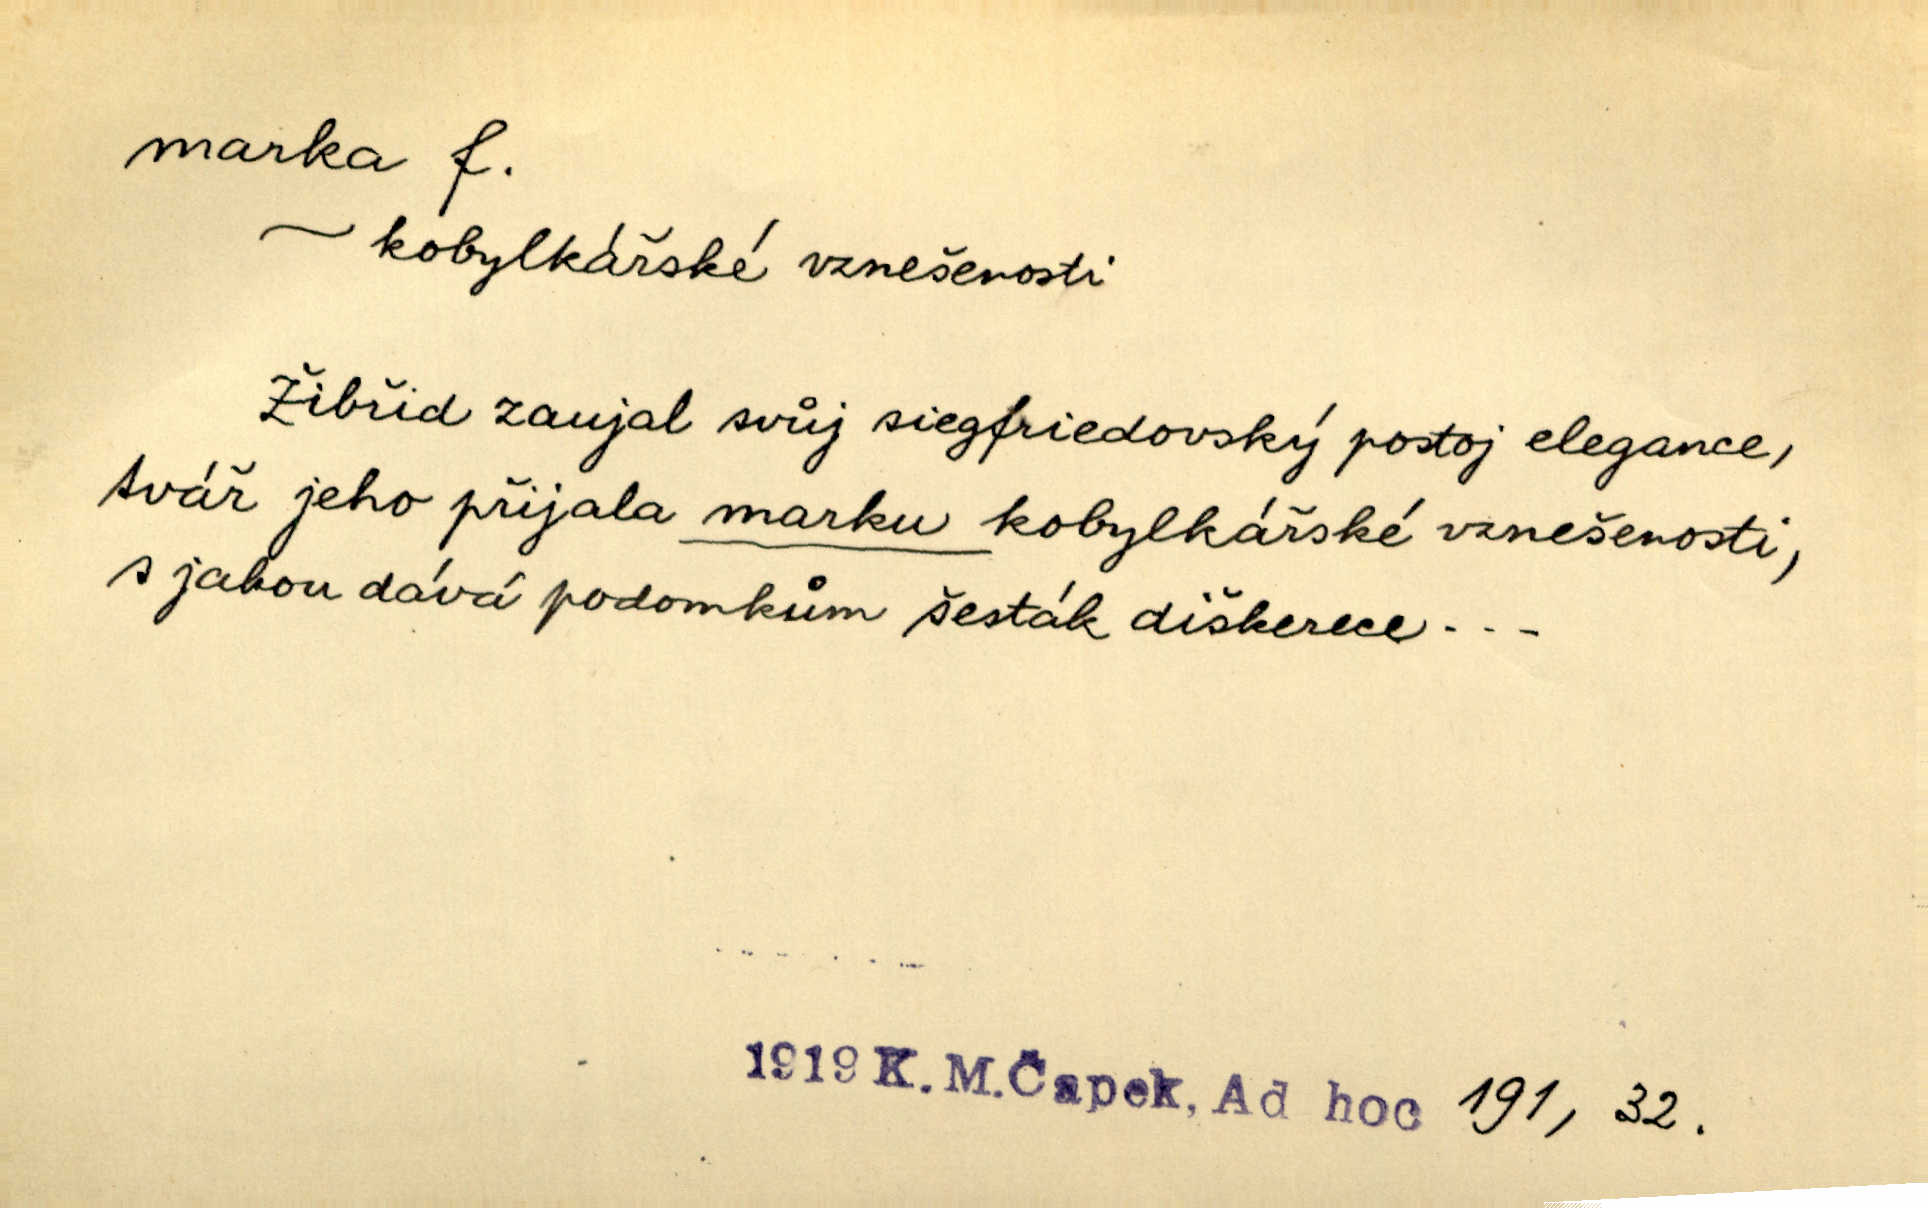 marka f.
~ kobylkářské vznešenosti
Žibřid zaujal svůj siegfriedovský postoj elegance,
tvář jeho přijala marku kobylkářské vznešenosti,
s jakou dává podomkům šesták diškerece - - -
1919 K. M. Čapek, Ad hoc 191, 32.